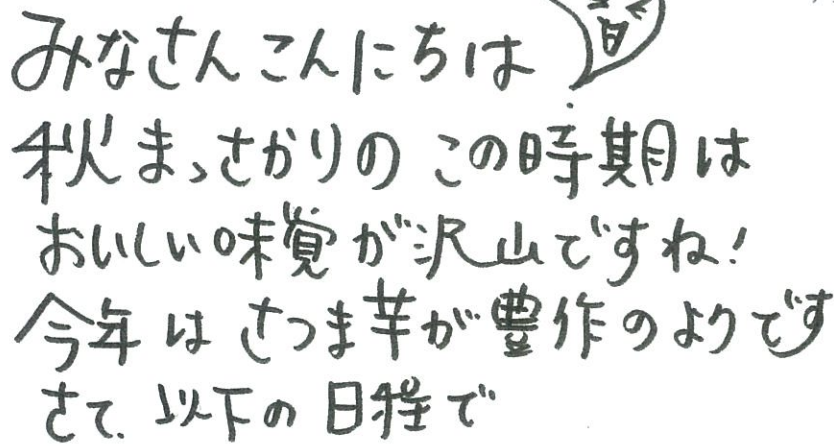 みなさんこんにちは
秋まっさかりのこの時期は
おいしい味覚が沢山ですね!
今年はさつま芋が豊作のようです
さて、以下の日程で